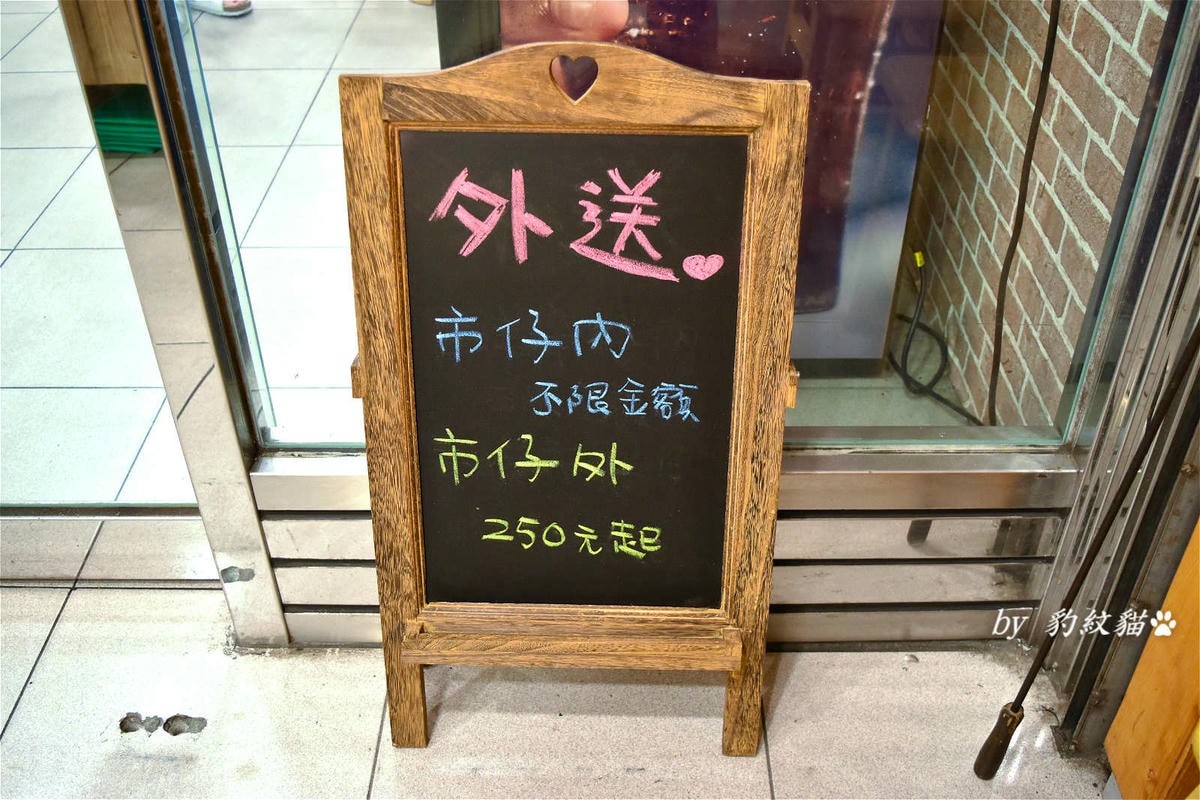 外送
市仔內
不限金額
市仔外
250元起
by 豹紋貓